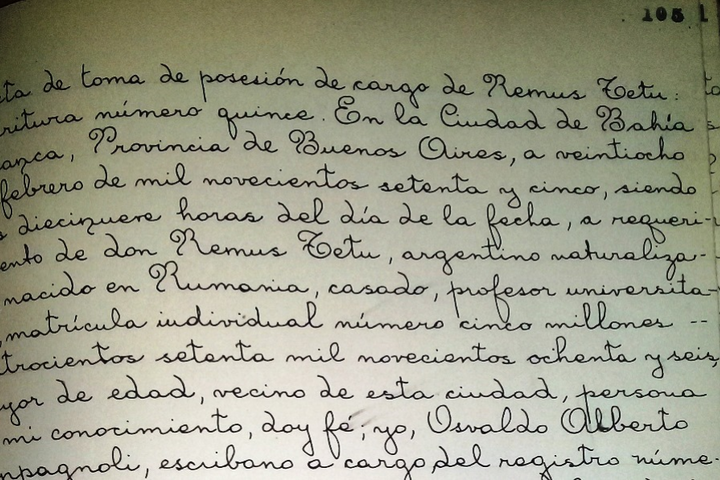 105
ta de toma de posesión de cargo de Remus Tetu:
ritura número quince. En la Ciudad de Bahía
anca, Provincia de Buenos Aires, a veintiocho
febrero de mil novecientos setenta y cinco, siendo
s diecinueve horas del día de la fecha, a requeri-
ento de don Remus Tetu, argentino naturaliza-
nacido en Rumania, casado, profesor universita-
, matrícula individual número cinco millones --
trocientos setenta mil novecientos ochenta y seis,
yor de edad, vecino de esta ciudad, persona
mi conocimiento, doy fé; yo, Osvaldo Alberto
mpagnoli, escribano a cargo del registro núme-